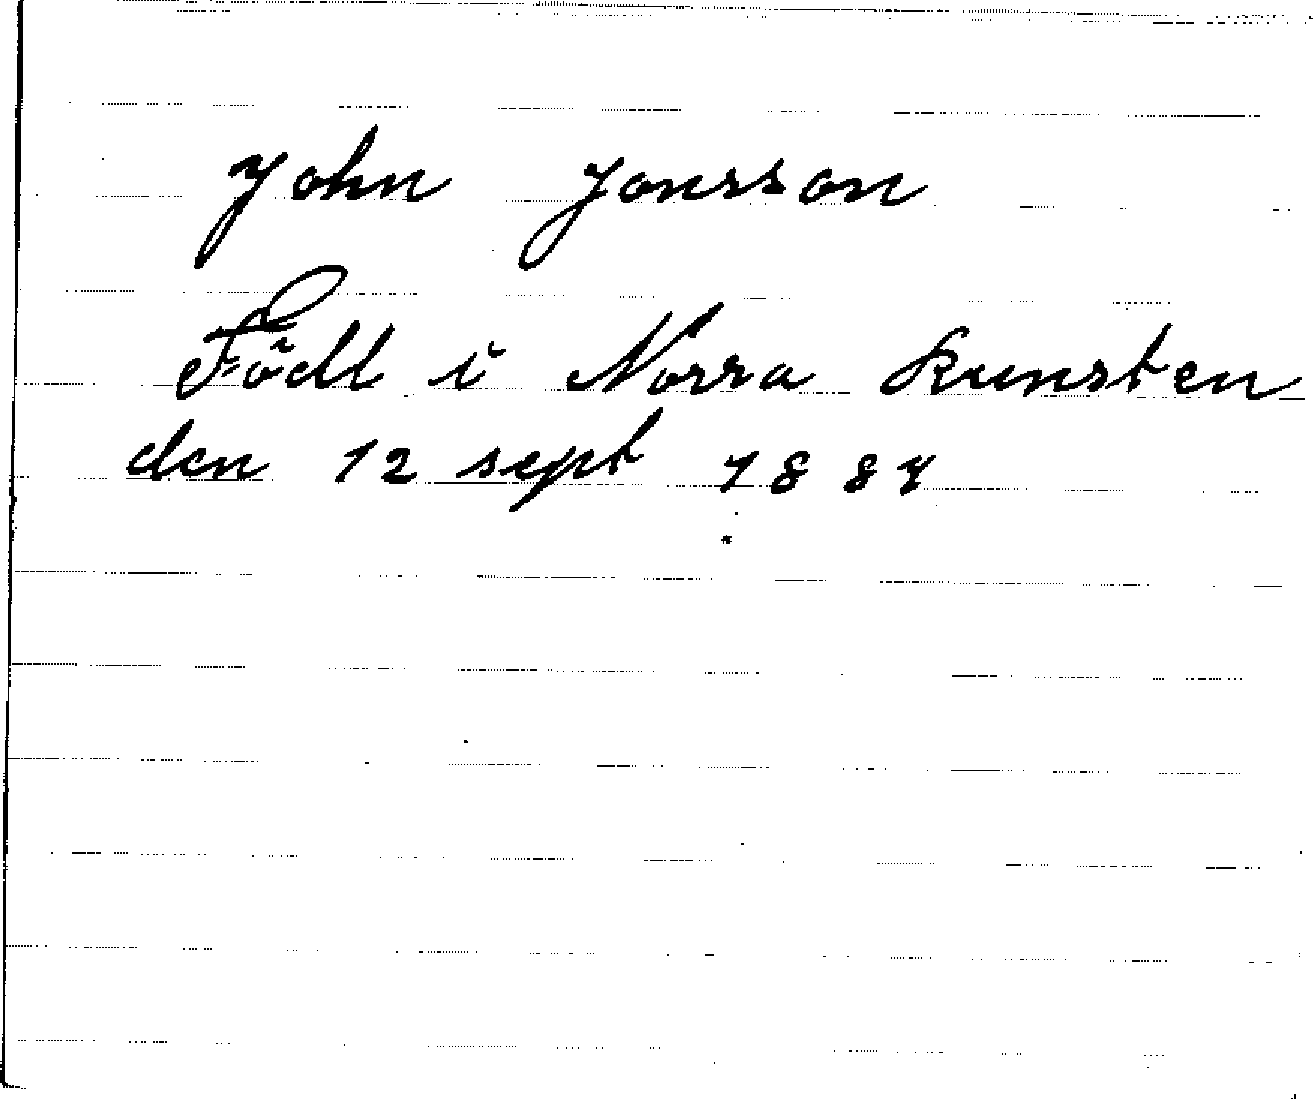 John Jonsson
Födt i Norra Runsten
den 12 sept 1884